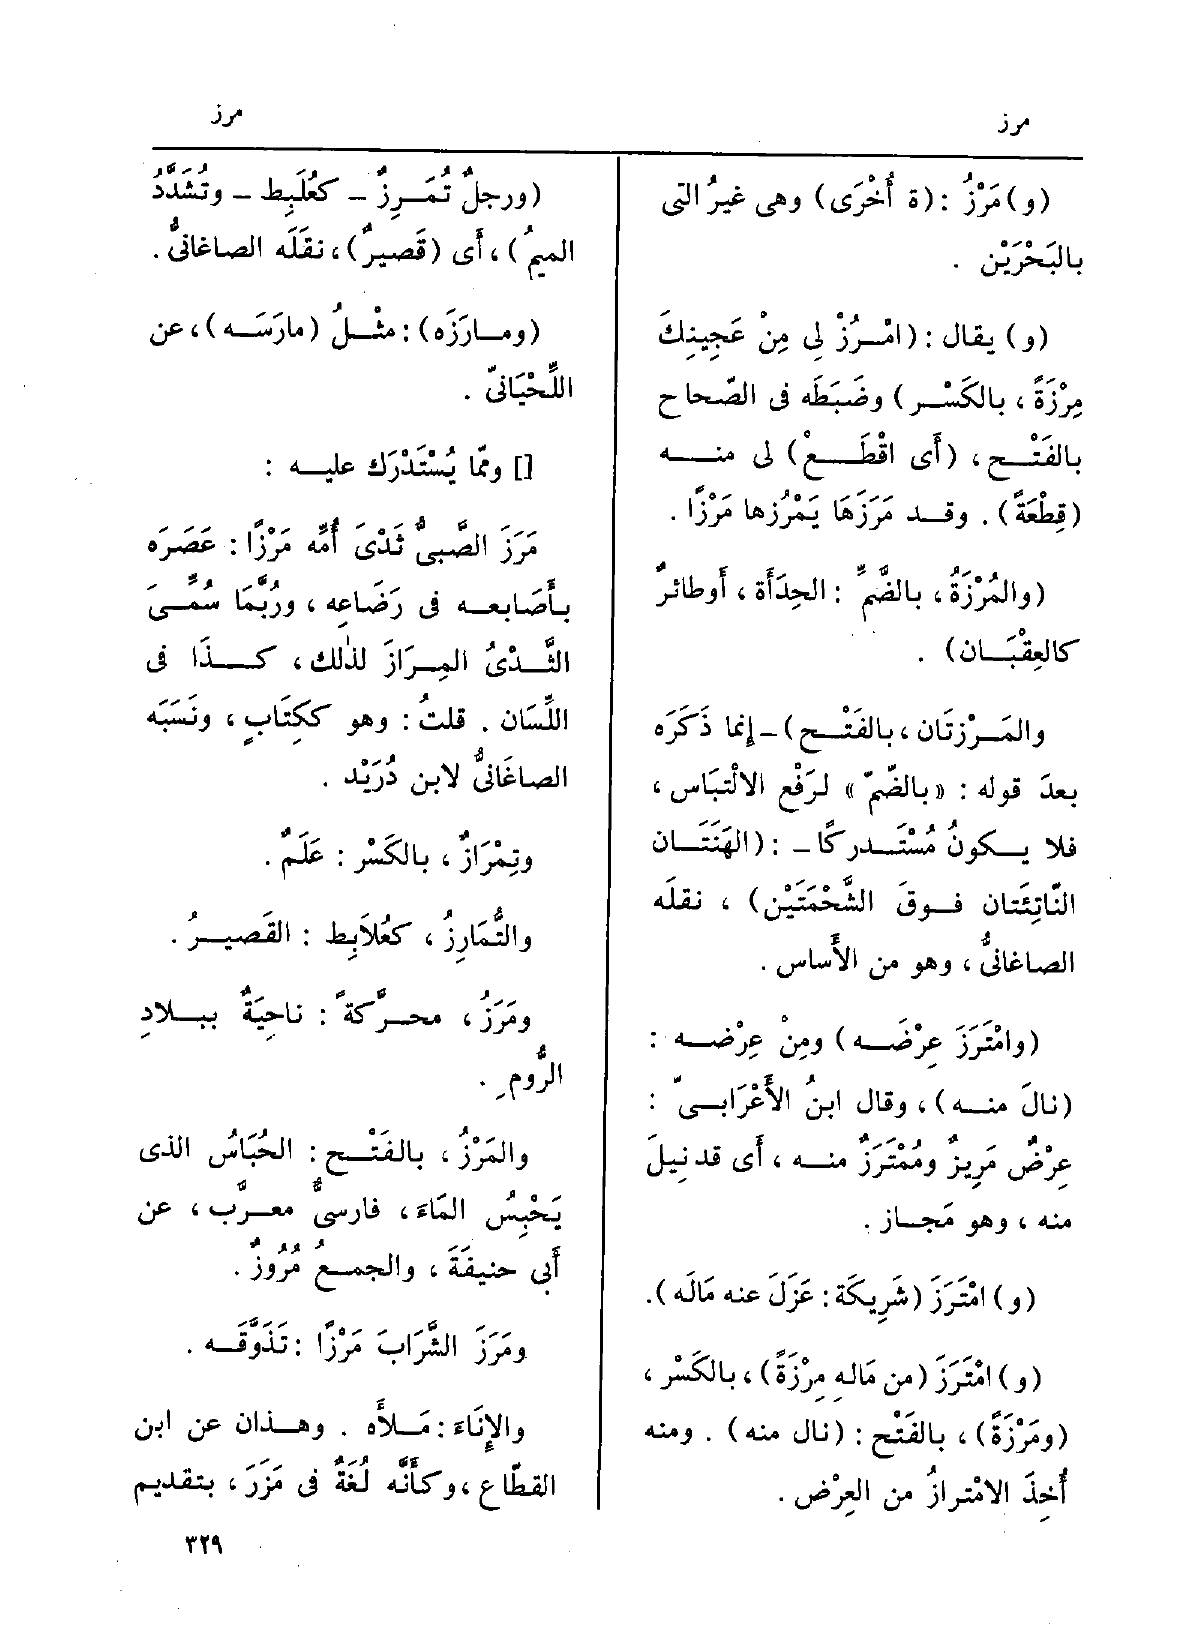 مرز
مرز
(و) مَرْزُ : (ة أُخْرَى) وهى غيرُ التى
بالبَحْرَيْن .
(و) يقال : (امْـرُزْ لِى مِنْ عَجِينِكَ
مِرْزَةً ، بالكَسْـر) وضَبَطَه فى الصّحاح
بالفَتْـح ، (أَى اقْطَـعْ) لى منـه
(قِطْعَةً) . وقـد مَرَزَهَا يَمْرُزها مَرْزًا .
(والمُرْزَةُ ، بالضَّمِّ : الحِدَأَة ، أَو طائرٌ
كالعِقْبَـان) .
والمَـرْزتَان ، بالفَتْـح) - إِنما ذَكَرَه
بعدَ قوله : « بالضَّمّ » لرَفْع الالْتبَاس ،
فلا يـكونُ مُسْتَـدركًا - : (الهَنَتَـان
النّاتِئَتان فـوقَ الشَّحْمَتَيْن) ، نقلَه
الصاغانىُّ ، وهو من الأَساس .
(وامْتَرَزَ عِرْضَـه) ومِنْ عِرْضـه :
(نالَ منـه) ، وقال ابنُ الأَعْرَابـىّ :
عِرْضٌ مَرِيزٌ ومُمْتَرَزٌ منـه ، أَى قد نِيلَ
منه ، وهو مَجـاز .
(و) امْتَرَزَ (شَرِيكَهُ : عَزَلَ عنه مَالَه) .
(و) امْتَرَزَ (من مَالِهِ مِرْزَةً) ، بالكَسْر ،
(ومَرْزَةً) ، بالفَتْح : (نال منه) . ومنه
أُخِذَ الامْتِرازُ من العِرْض .
(ورجلٌ تُمَـرِزٌ - كعُلَبِـط - وتُشَدَّدُ
الميمُ) ، أَى (قَصيرٌ) ، نقَلَه الصاغانىُّ .
(ومـارَزَه) : مثْـلُ (مارَسَـه) ، عن
اللِّحْيَانىّ .
[] وممّا يُسْتَدْرَك عليـه :
مَرَزَ الصَّبىُّ ثَدْىَ أُمِّه مَرْزًا : عَصَرَه
بأَصَابعـه فى رَضَاعِه ، ورُبَّمَا سُمِّـىَ
الثَّـدْىُ المِـرَازَ لذٰلك ، كـذَا فى
اللِّسَان . قلتُ : وهو ككِتَابٍ ، ونَسَبَه
الصاغَانىُّ لابن دُرَيْد .
وتِمْرَازٌ ، بالكَسْر : عَلَمٌ .
والتُّمَارِزُ ، كعُلاَبِط : القَصيـرُ .
ومَرَزُ ، محـرَّكةً : ناحِيَةٌ ببـلادِ
الرُّومِ .
والمَرْزُ ، بالفَتْـح : الحُبَاسُ الذى
يَحْبِسُ المَاءَ ، فارسىٌّ معـرَّب ، عن
أَبى حنيفَةَ ، والجمـعُ مُرُوزٌ .
ومَرَزَ الشَّرَابَ مَرْزًا : تَذَوَّقَـه .
والإِنَاءَ : مَـلأَه . وهـذان عن ابن
القطّاع ، وكأَنَّه لُغَةٌ فى مَزَرَ ، بتقديم
٣٢٩